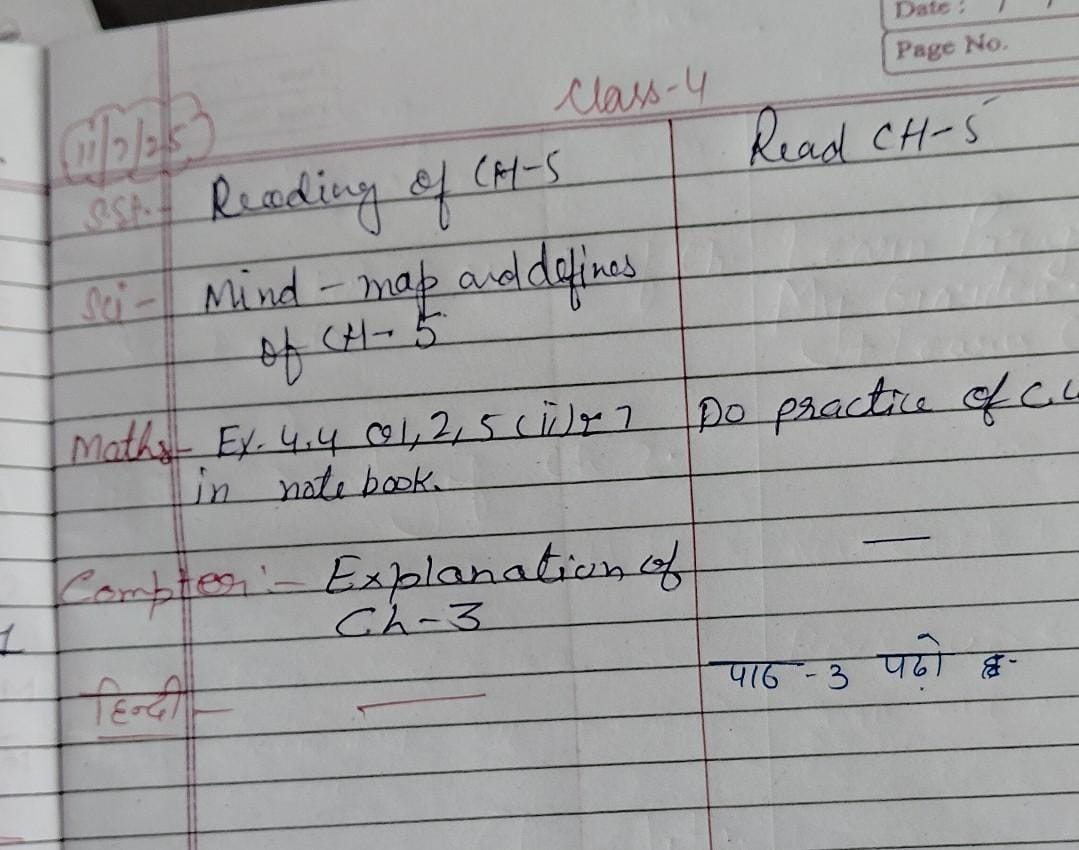 Date : / /
Page No.
Class-4
11/7/25
S.St.- Reading of CH-5 Read CH-5
Sci- Mind-map and defines
of CH-5
Maths- Ex. 4.4 Q1, 2, 5 (ii) & 7 Do practice of C.W
in note book.
Compter:- Explanation of —
Ch-3
हिन्दी- — पाठ-3 पढ़ो